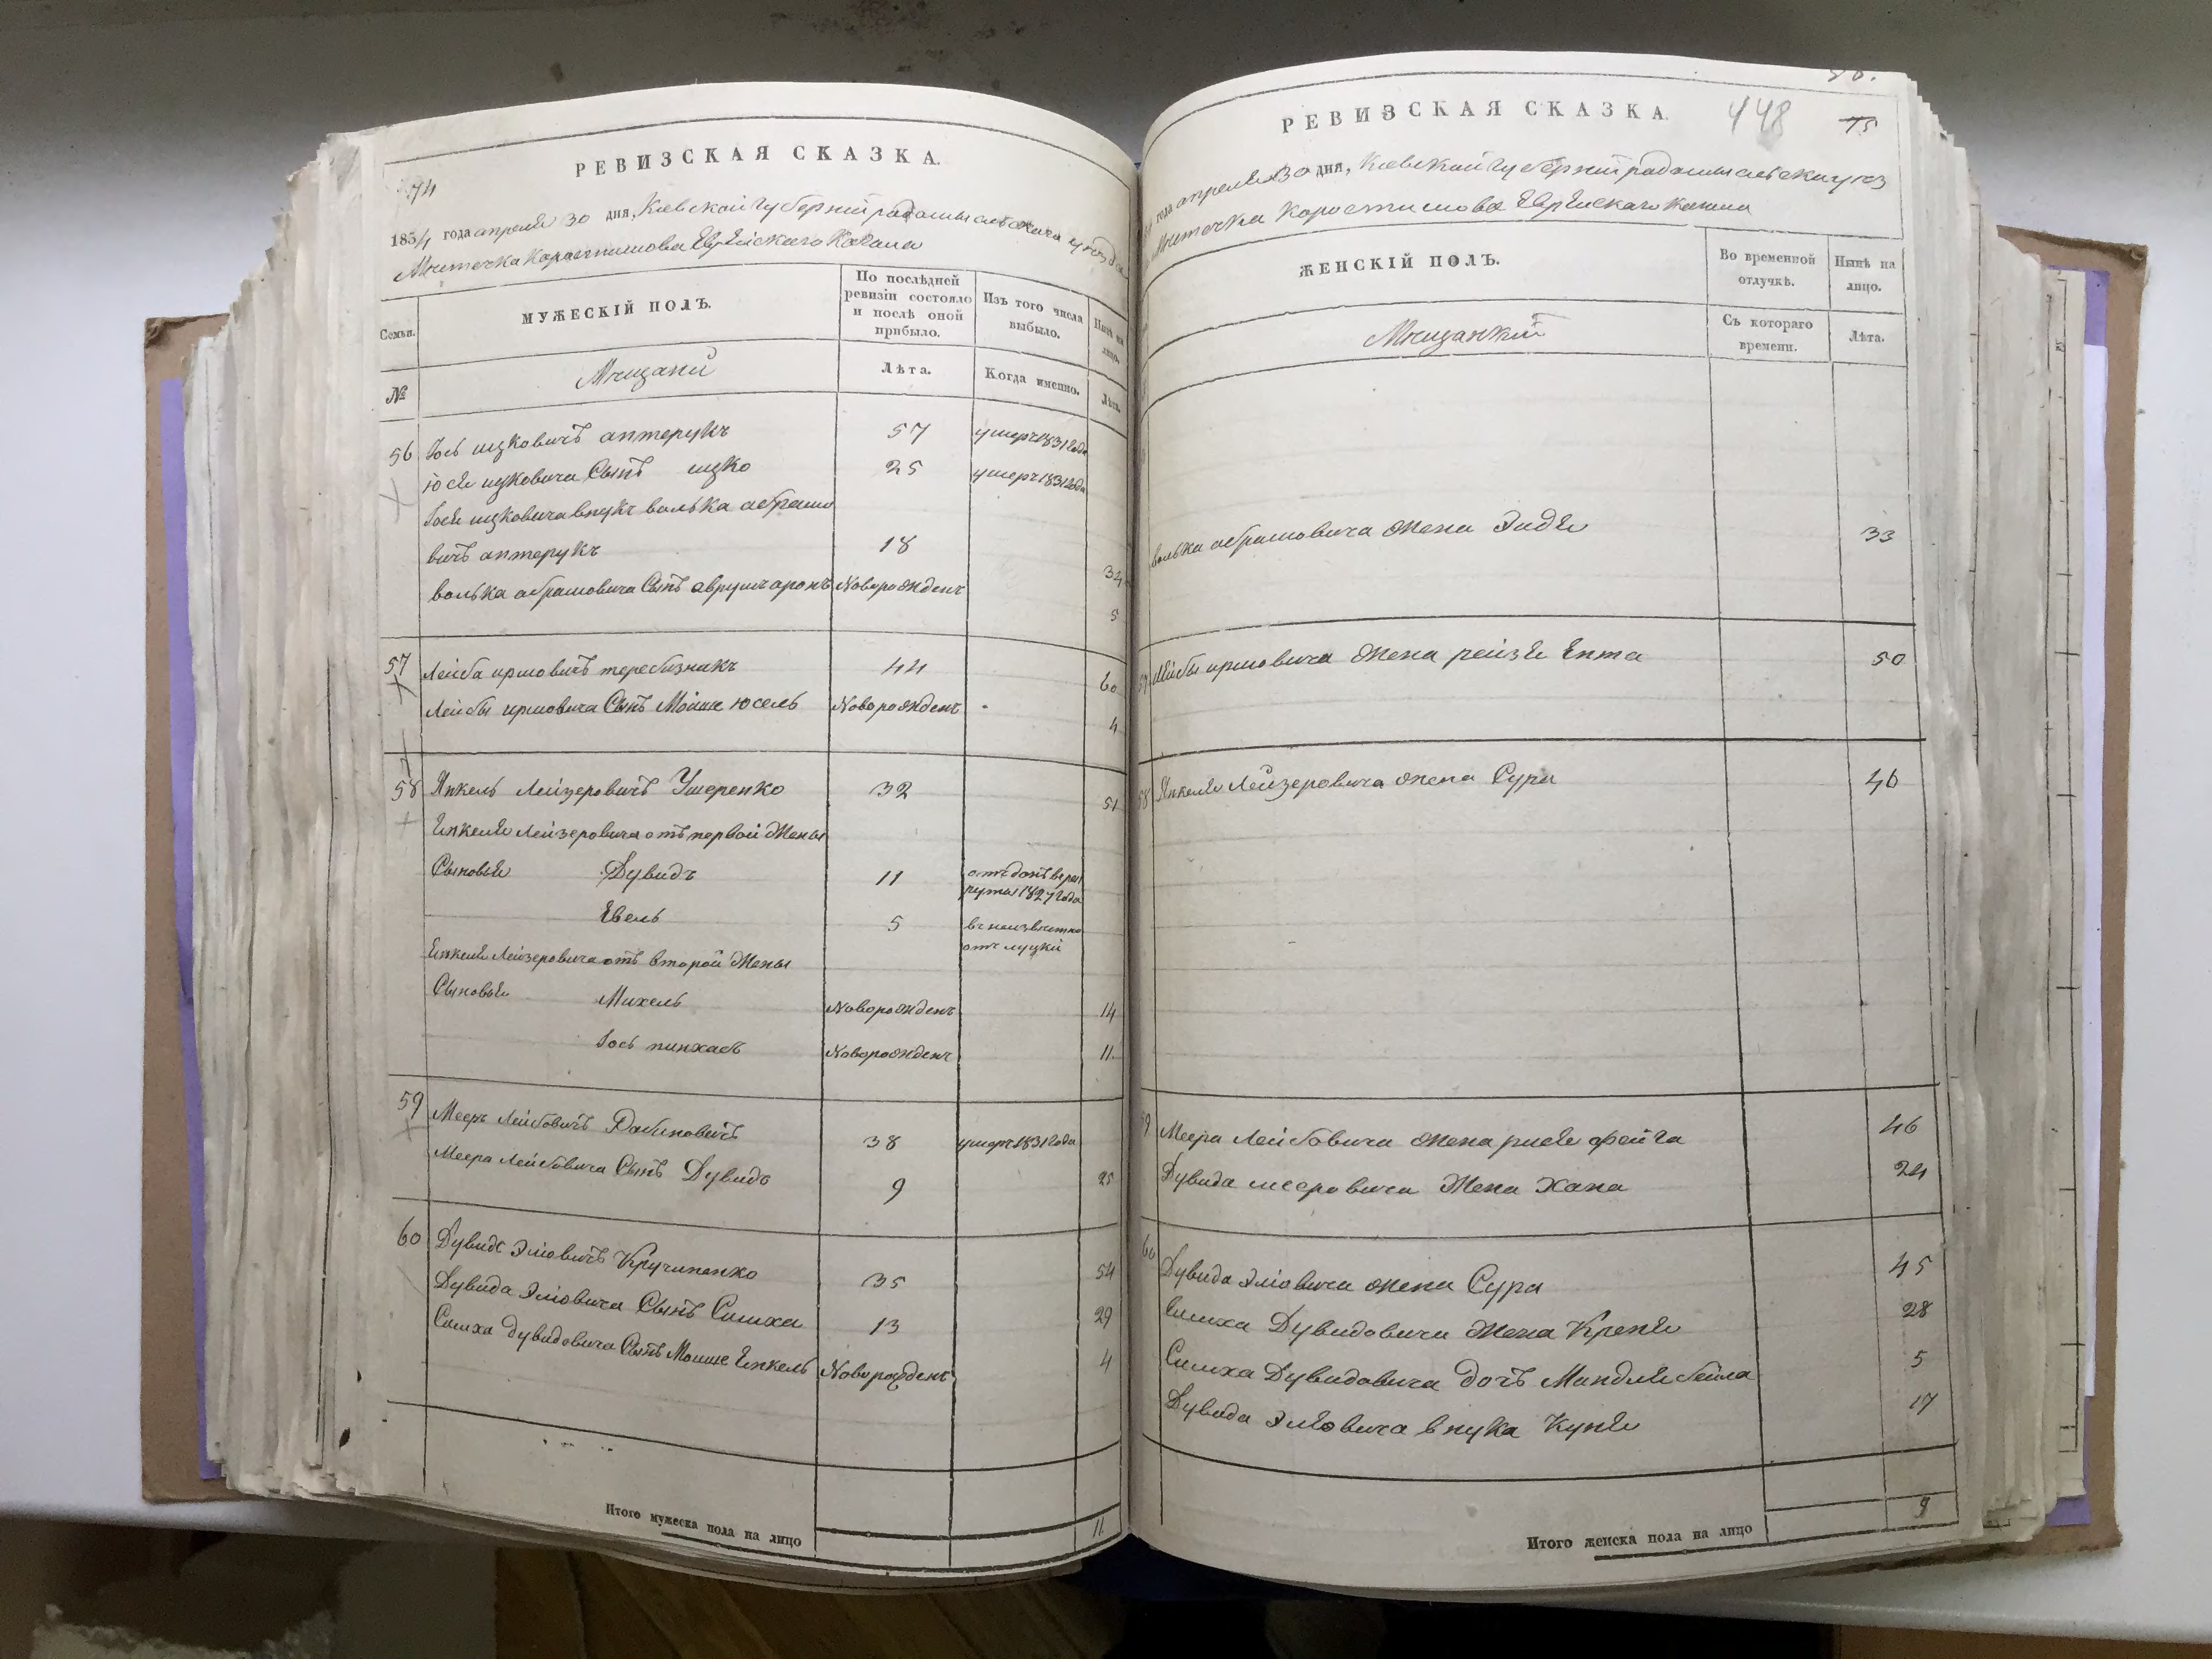 РЕВИЗСКАЯ СКАЗКА.
74
1854 года апреля 30 дня, Киевской губернии радомысльскаго уезда
Мистечка Коростишова Еврейскаго Кагала
Семьи.
МУЖЕСКІЙ ПОЛЪ.
По послѣдней ревизіи состояло и послѣ оной прибыло.
Изъ того числа выбыло.
Нынѣ на лицо.
№
Мещани
Лѣта.
Когда именно.
Лѣта.
56 Іось ицковичъ аптерукъ 57 умеръ 1831 года
Іося ицковича Сынъ ицко 25 умеръ 1831 года
Іося ицковича внукъ волька абрамо
вичъ аптерукъ 18 34
волька абрамовича Сынъ аврумъ аронъ Новорожденъ 5
57 Лейба ирмовичъ теребизникъ 44 60
Лейбы ирмовича Сынъ Мойше юсель Новорожденъ 4
58 Янкель Лейзеровичъ Ушеренко 32 51
Енкеля Лейзеровича отъ первой Жены
Сыновья Дувидъ 11 отданъ в рек
руты 1827 года
Евель 5 въ неизвестно
отлучки
Енкеля Лейзеровича отъ второй Жены
Сыновья Михель Новорожденъ 14
Іось пинхасъ Новорожденъ 11
59 Мееръ Лейбовичъ Рабиновичъ 38 умеръ 1831 года
Меера Лейбовича Сынъ Дувидъ 9 25
60 Дувидъ Эліовичъ Кручиненко 35 54
Дувида Эліовича Сынъ Симха 13 29
Симха Дувидовича Сынъ Моише Енкель Новорожденъ 4
Итого мужеска пола на лицо 11
РЕВИЗСКАЯ СКАЗКА.
448
75
года апреля 30 дня, Киевской губернии радомысльскаго уез
Мистечка Коростишова Еврейскаго Кагала
ЖЕНСКІЙ ПОЛЪ.
Во временной отлучкѣ.
Нынѣ на лицо.
Мещанкий
Съ котораго времени.
Лѣта.
волька абрамовича жена Эидя 33
57 Лейбы ирмовича жена рейзя Ента 50
58 Янкеля Лейзеровича жена Сура 46
9 Меера Лейбовича жена рися фейга 46
Дувида мееровича Жена Хана 24
60 Дувида Эліовича жена Сура 45
Симха Дувидовича жена Креня 28
Симха Дувидовича дочъ Миндля бейла 5
Дувида Элёовича внука Куня 17
Итого женска пола на лицо 9